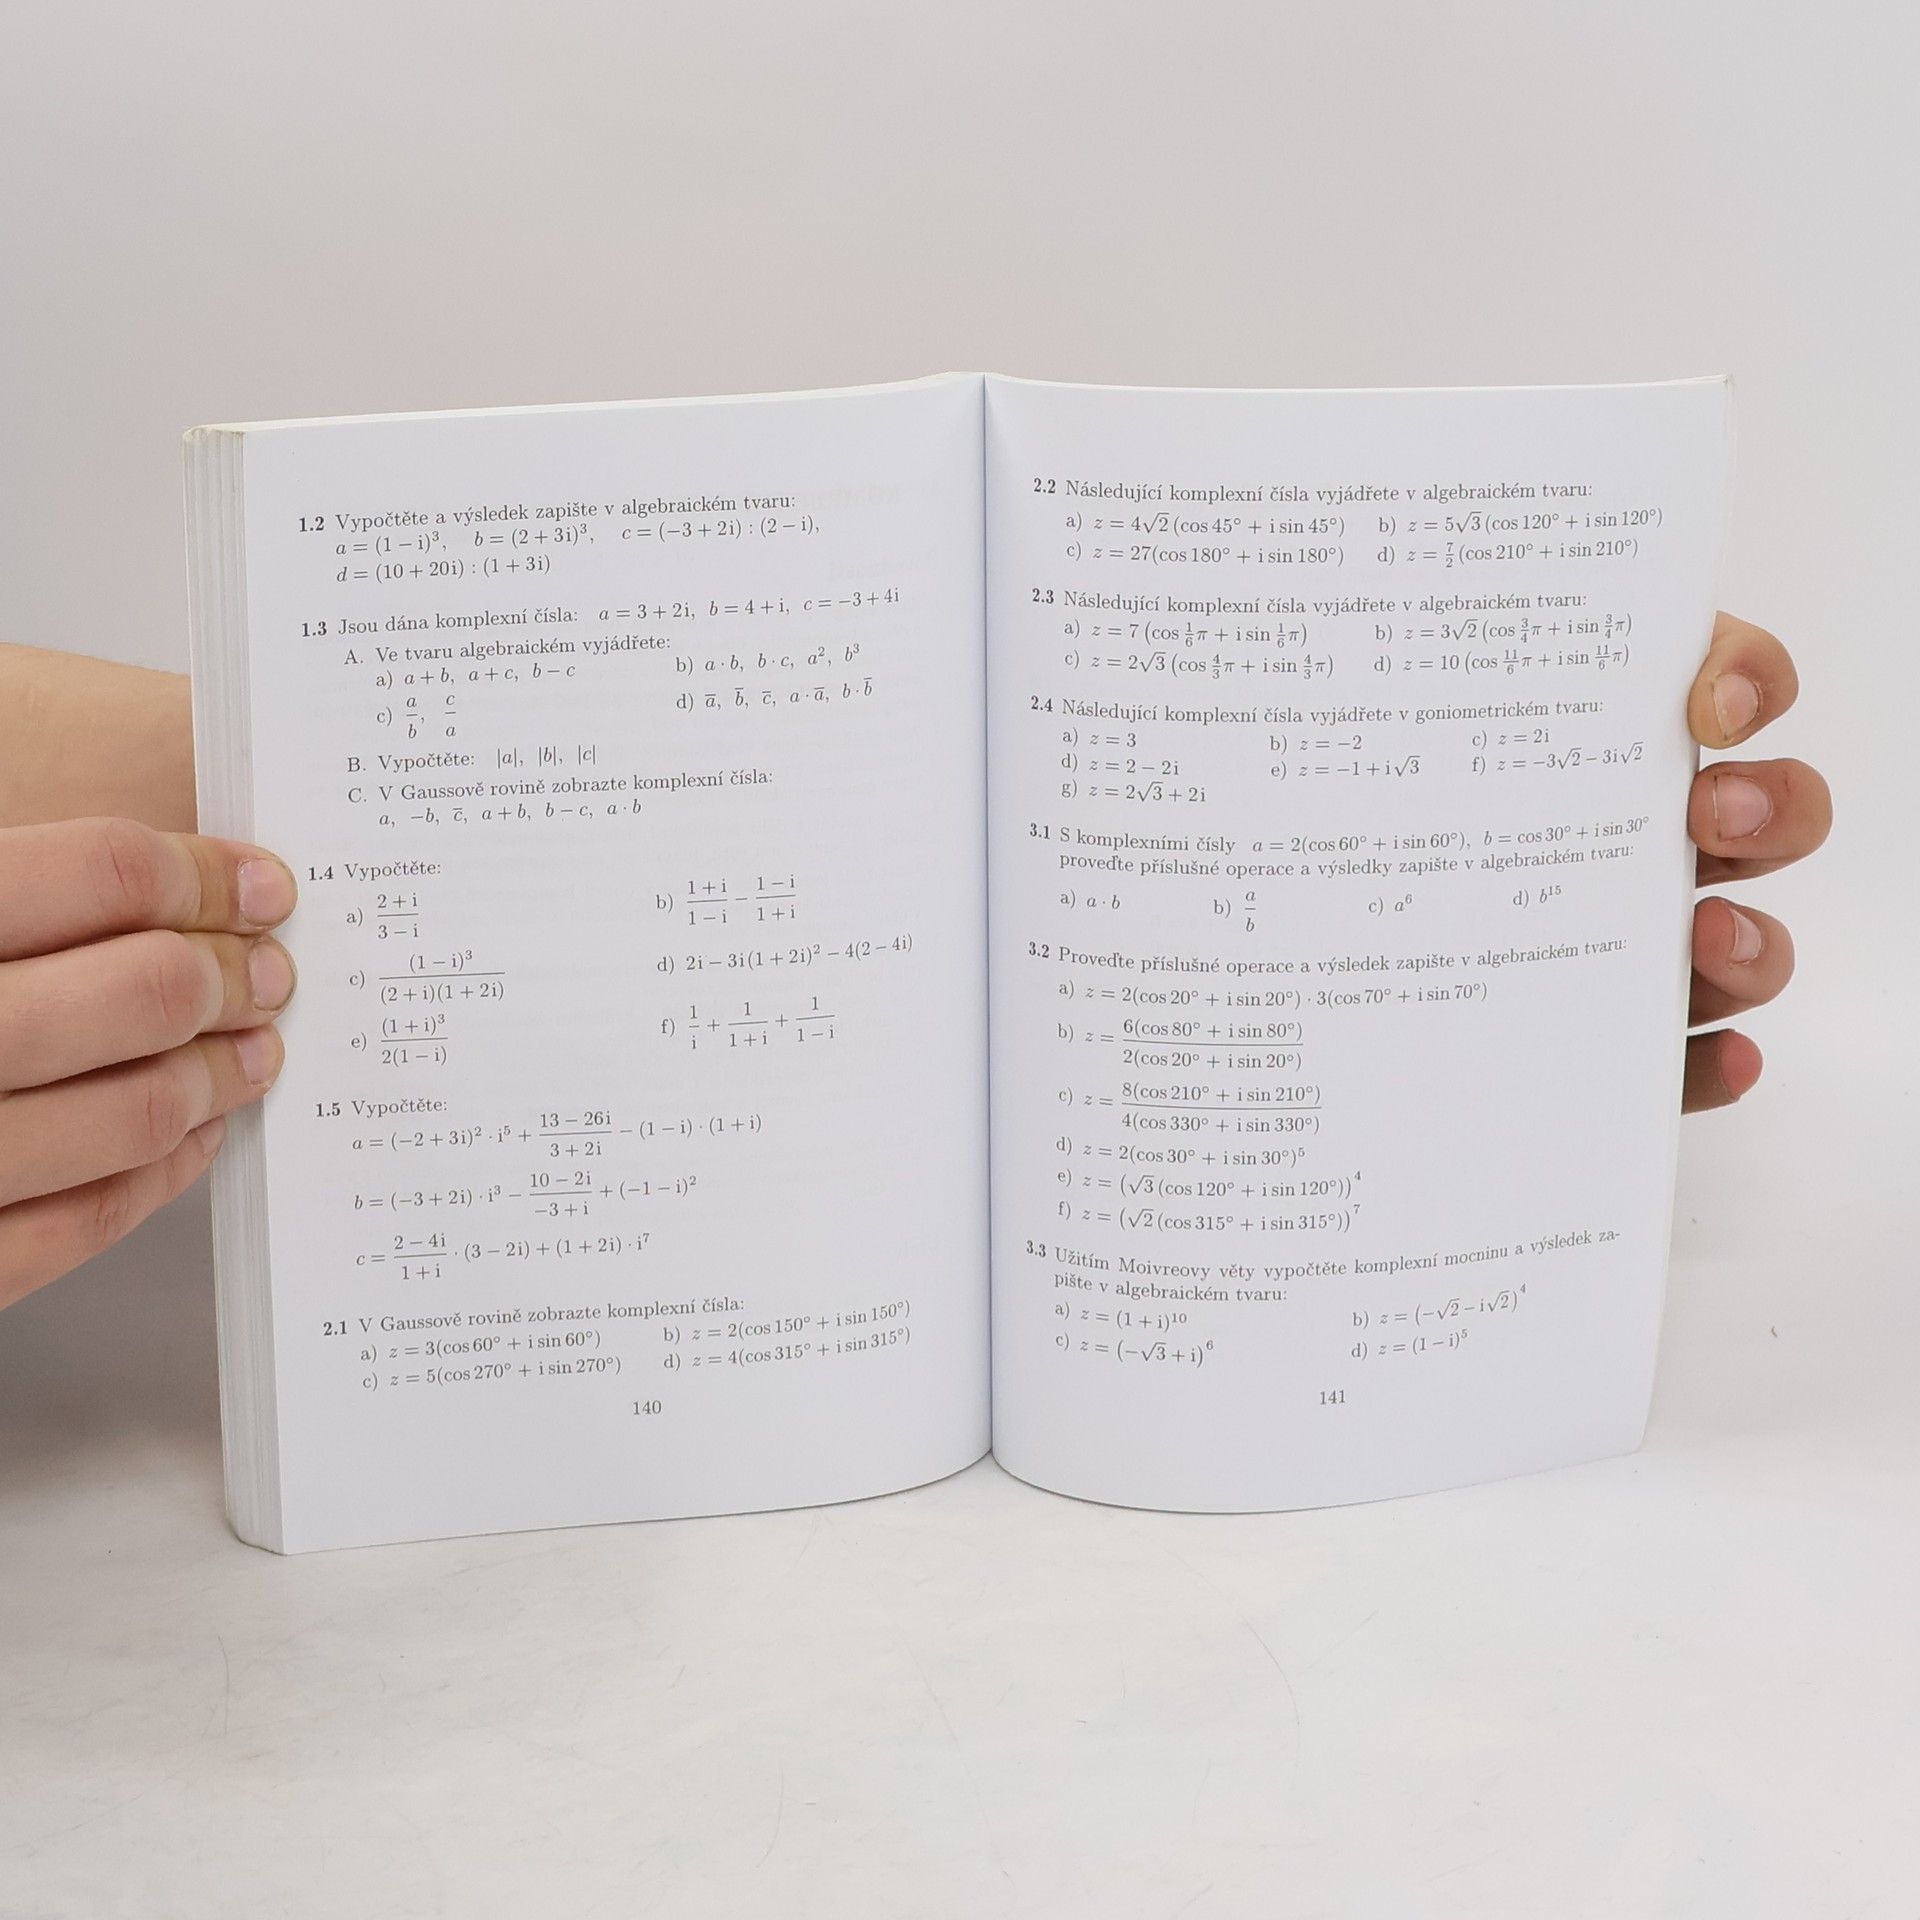 1.2 Vypočtěte a výsledek zapište v algebraickém tvaru:
a = (1 − i)³, b = (2 + 3i)³, c = (−3 + 2i) : (2 − i),
d = (10 + 20i) : (1 + 3i)
1.3 Jsou dána komplexní čísla: a = 3 + 2i, b = 4 + i, c = −3 + 4i
A. Ve tvaru algebraickém vyjádřete:
a) a + b, a + c, b − c b) a · b, b · c, a², b³
c) a/b, c/a d) a̅, b̅, c̅, a · a̅, b · b̅
B. Vypočtěte: |a|, |b|, |c|
C. V Gaussově rovině zobrazte komplexní čísla:
a, −b, c̅, a + b, b − c, a · b
1.4 Vypočtěte:
a) (2 + i)/(3 − i) b) (1 + i)/(1 − i) − (1 − i)/(1 + i)
c) (1 − i)³/((2 + i)(1 + 2i)) d) 2i − 3i(1 + 2i)² − 4(2 − 4i)
e) (1 + i)³/(2(1 − i)) f) 1/i + 1/(1 + i) + 1/(1 − i)
1.5 Vypočtěte:
a = (−2 + 3i)² · i⁵ + (13 − 26i)/(3 + 2i) − (1 − i) · (1 + i)
b = (−3 + 2i) · i³ − (10 − 2i)/(−3 + i) + (−1 − i)²
c = (2 − 4i)/(1 + i) · (3 − 2i) + (1 + 2i) · i⁷
2.1 V Gaussově rovině zobrazte komplexní čísla:
a) z = 3(cos 60° + i sin 60°) b) z = 2(cos 150° + i sin 150°)
c) z = 5(cos 270° + i sin 270°) d) z = 4(cos 315° + i sin 315°)
140
2.2 Následující komplexní čísla vyjádřete v algebraickém tvaru:
a) z = 4√2 (cos 45° + i sin 45°) b) z = 5√3 (cos 120° + i sin 120°)
c) z = 27(cos 180° + i sin 180°) d) z = 7/2 (cos 210° + i sin 210°)
2.3 Následující komplexní čísla vyjádřete v algebraickém tvaru:
a) z = 7 (cos 1/6 π + i sin 1/6 π) b) z = 3√2 (cos 3/4 π + i sin 3/4 π)
c) z = 2√3 (cos 4/3 π + i sin 4/3 π) d) z = 10 (cos 11/6 π + i sin 11/6 π)
2.4 Následující komplexní čísla vyjádřete v goniometrickém tvaru:
a) z = 3 b) z = −2 c) z = 2i
d) z = 2 − 2i e) z = −1 + i√3 f) z = −3√2 − 3i√2
g) z = 2√3 + 2i
3.1 S komplexními čísly a = 2(cos 60° + i sin 60°), b = cos 30° + i sin 30°
proveďte příslušné operace a výsledky zapište v algebraickém tvaru:
a) a · b b) a/b c) a⁶ d) b¹⁵
3.2 Proveďte příslušné operace a výsledek zapište v algebraickém tvaru:
a) z = 2(cos 20° + i sin 20°) · 3(cos 70° + i sin 70°)
b) z = 6(cos 80° + i sin 80°)/2(cos 20° + i sin 20°)
c) z = 8(cos 210° + i sin 210°)/4(cos 330° + i sin 330°)
d) z = 2(cos 30° + i sin 30°)⁵
e) z = (√3 (cos 120° + i sin 120°))⁴
f) z = (√2 (cos 315° + i sin 315°))⁷
3.3 Užitím Moivreovy věty vypočtěte komplexní mocninu a výsledek za-
pište v algebraickém tvaru:
a) z = (1 + i)¹⁰ b) z = (−√2 − i√2)⁴
c) z = (−√3 + i)⁶ d) z = (1 − i)⁵
141